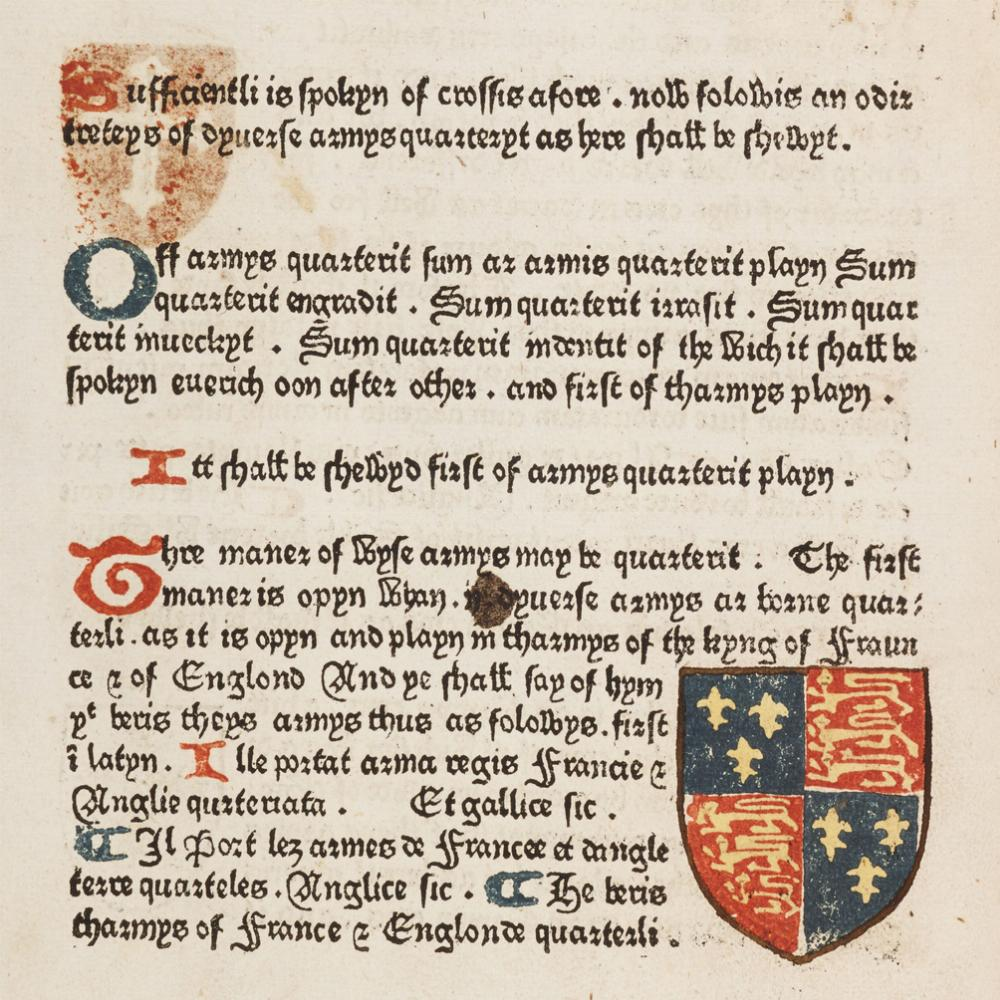 Sufficientli is spokyn of crossis afore . now folowis an odir
treteys of dyuerse armys quarteryt as here shall be shewyt.
Off armys quarterit sum ar armis quarterit playn Sum
quarterit engradit . Sum quarterit irrasit . Sum quar
terit inueckyt . Sum quarterit indentit of the wich it shall be
spokyn euerich oon after other . and first of tharmys playn .
Itt shall be shewyd first of armys quarterit playn .
Thre maner of wyse armys may be quarterit : The first
maner is opyn whan . dyuerse armys ar borne quar:
terli . as it is opyn and playn in tharmys of the kyng of Fraun
ce ⁊ of Englond And ye shall say of hym
yͭ beris theys armys thus as folowys. first
ī latyn. Ille portat arma regis Francie ⁊
Anglie qurteriata . Et gallice sic .
¶ Il Port lez armes de Francee et dangle
terre quarteles . Anglice sic . ¶ He beris
tharmys of France ⁊ Englonde quarterli .